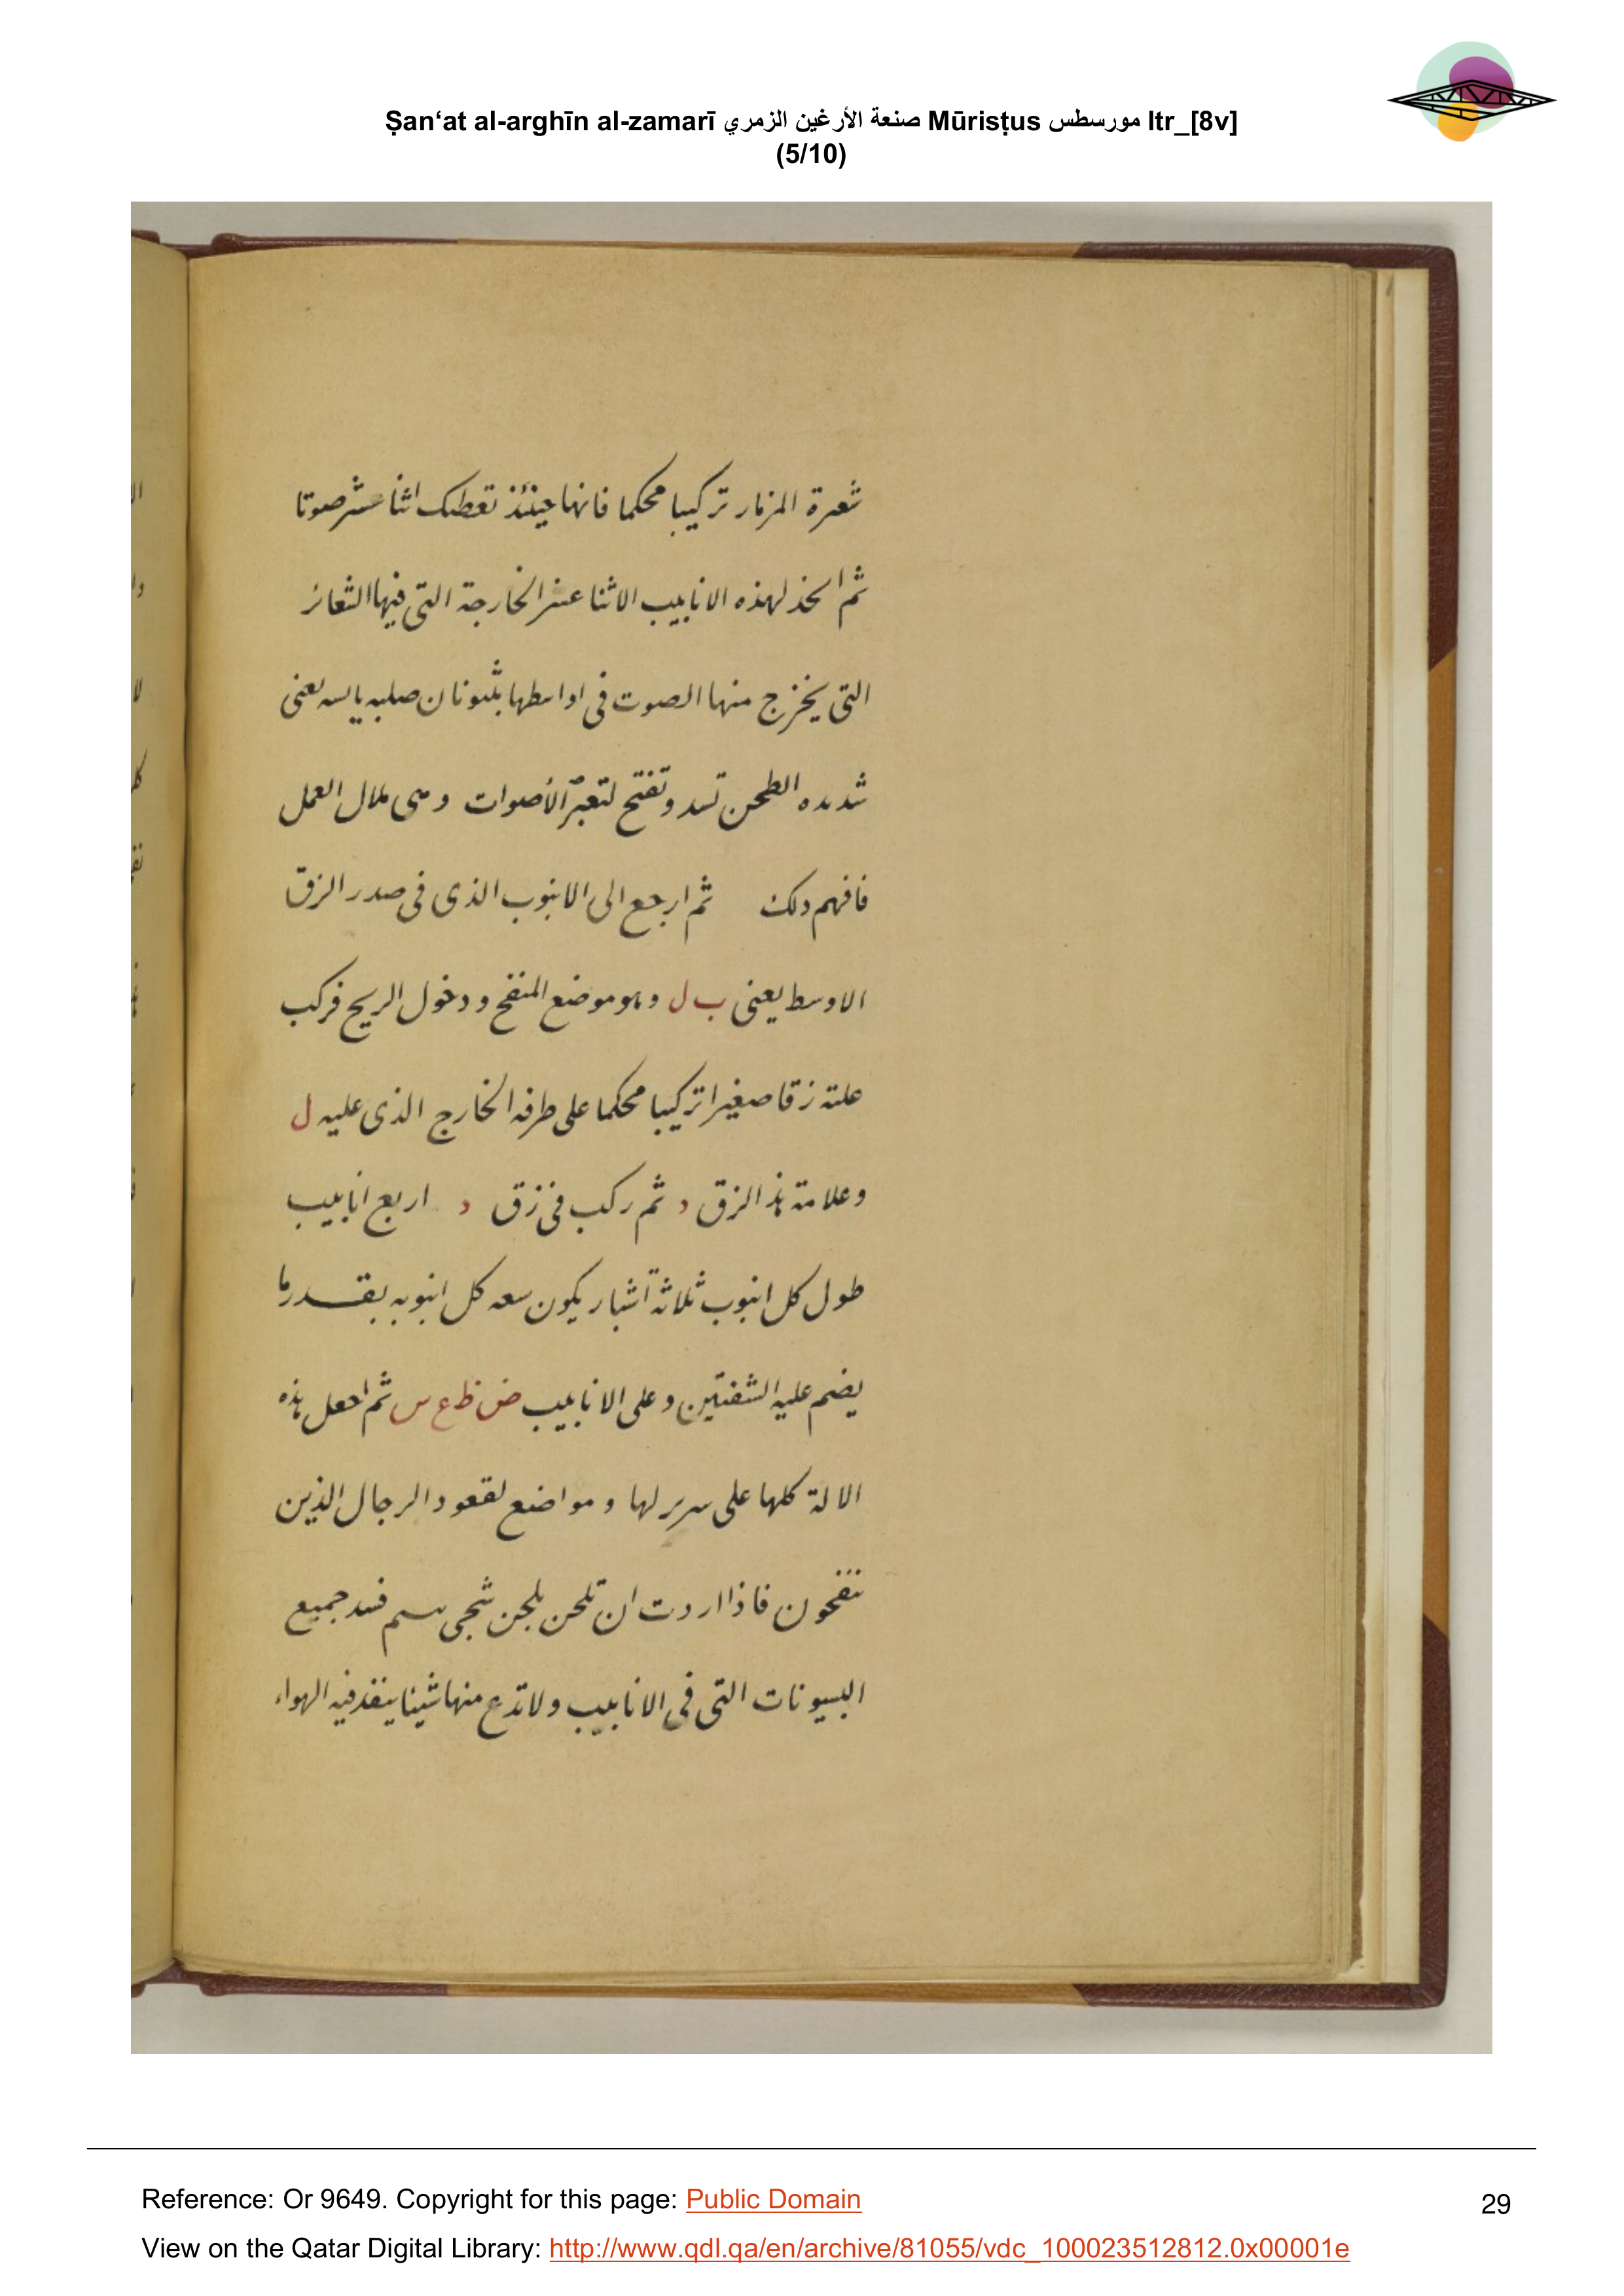 Ṣan‘at al-arghīn al-zamarī صنعة الأرغين الزمري Mūrisṭus مورسطس ltr_[8v]
(5/10)
شعرة المزمار تركيبا محكما فانها حينئذ تعطيك اثنا عشر صوتا
ثم اتخذ لهذه الانابيب الاثنا عشر الخارجة التى فيها الشعائر
التى يخرج منها الصوت فى اواسطها بثيونان صلبه يابسه يعنى
شديده الطحن تسد وتفتح لتعبّر الأصوات ومى ملال العمل
فافهم ذلك ثم ارجع الى الانبوب الذى فى صدر الزق
الاوسط يعنى ب ل وهو موضع المنفخ ودخول الريح فركب
عليه زقا صغيرا تركيبا محكما على طرفه الخارج الذى عليه ل
وعلامة هذ الزق د ثم ركب فى زق د اربع انابيب
طول كل انبوب ثلاثة أشبار يكون سعه كل انبوبه بقدر ما
يضم عليه الشفتين وعلى الانابيب ض ظ ع س ثم اجعل هذه
الالة كلها على سرير لها ومواضع لقعود الرجال الذين
ينفخون فاذا اردت ان تلحن بلحن شجى فسد جميع
البسيونات التى فى الانابيب ولا تدع منها شيئا ينفد فيه الهواء
Reference: Or 9649. Copyright for this page: Public Domain
29
View on the Qatar Digital Library: http://www.qdl.qa/en/archive/81055/vdc_100023512812.0x00001e